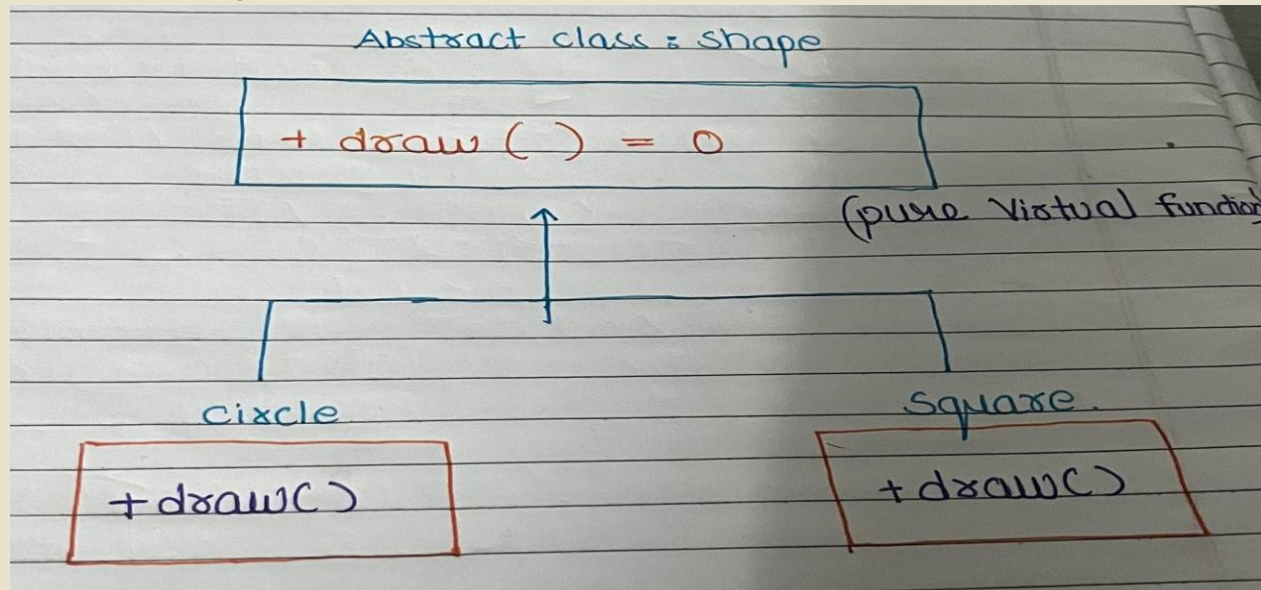 Abstract class : shape
+ draw ( ) = 0
(pure Virtual function)
circle
Square.
+draw()
+draw()